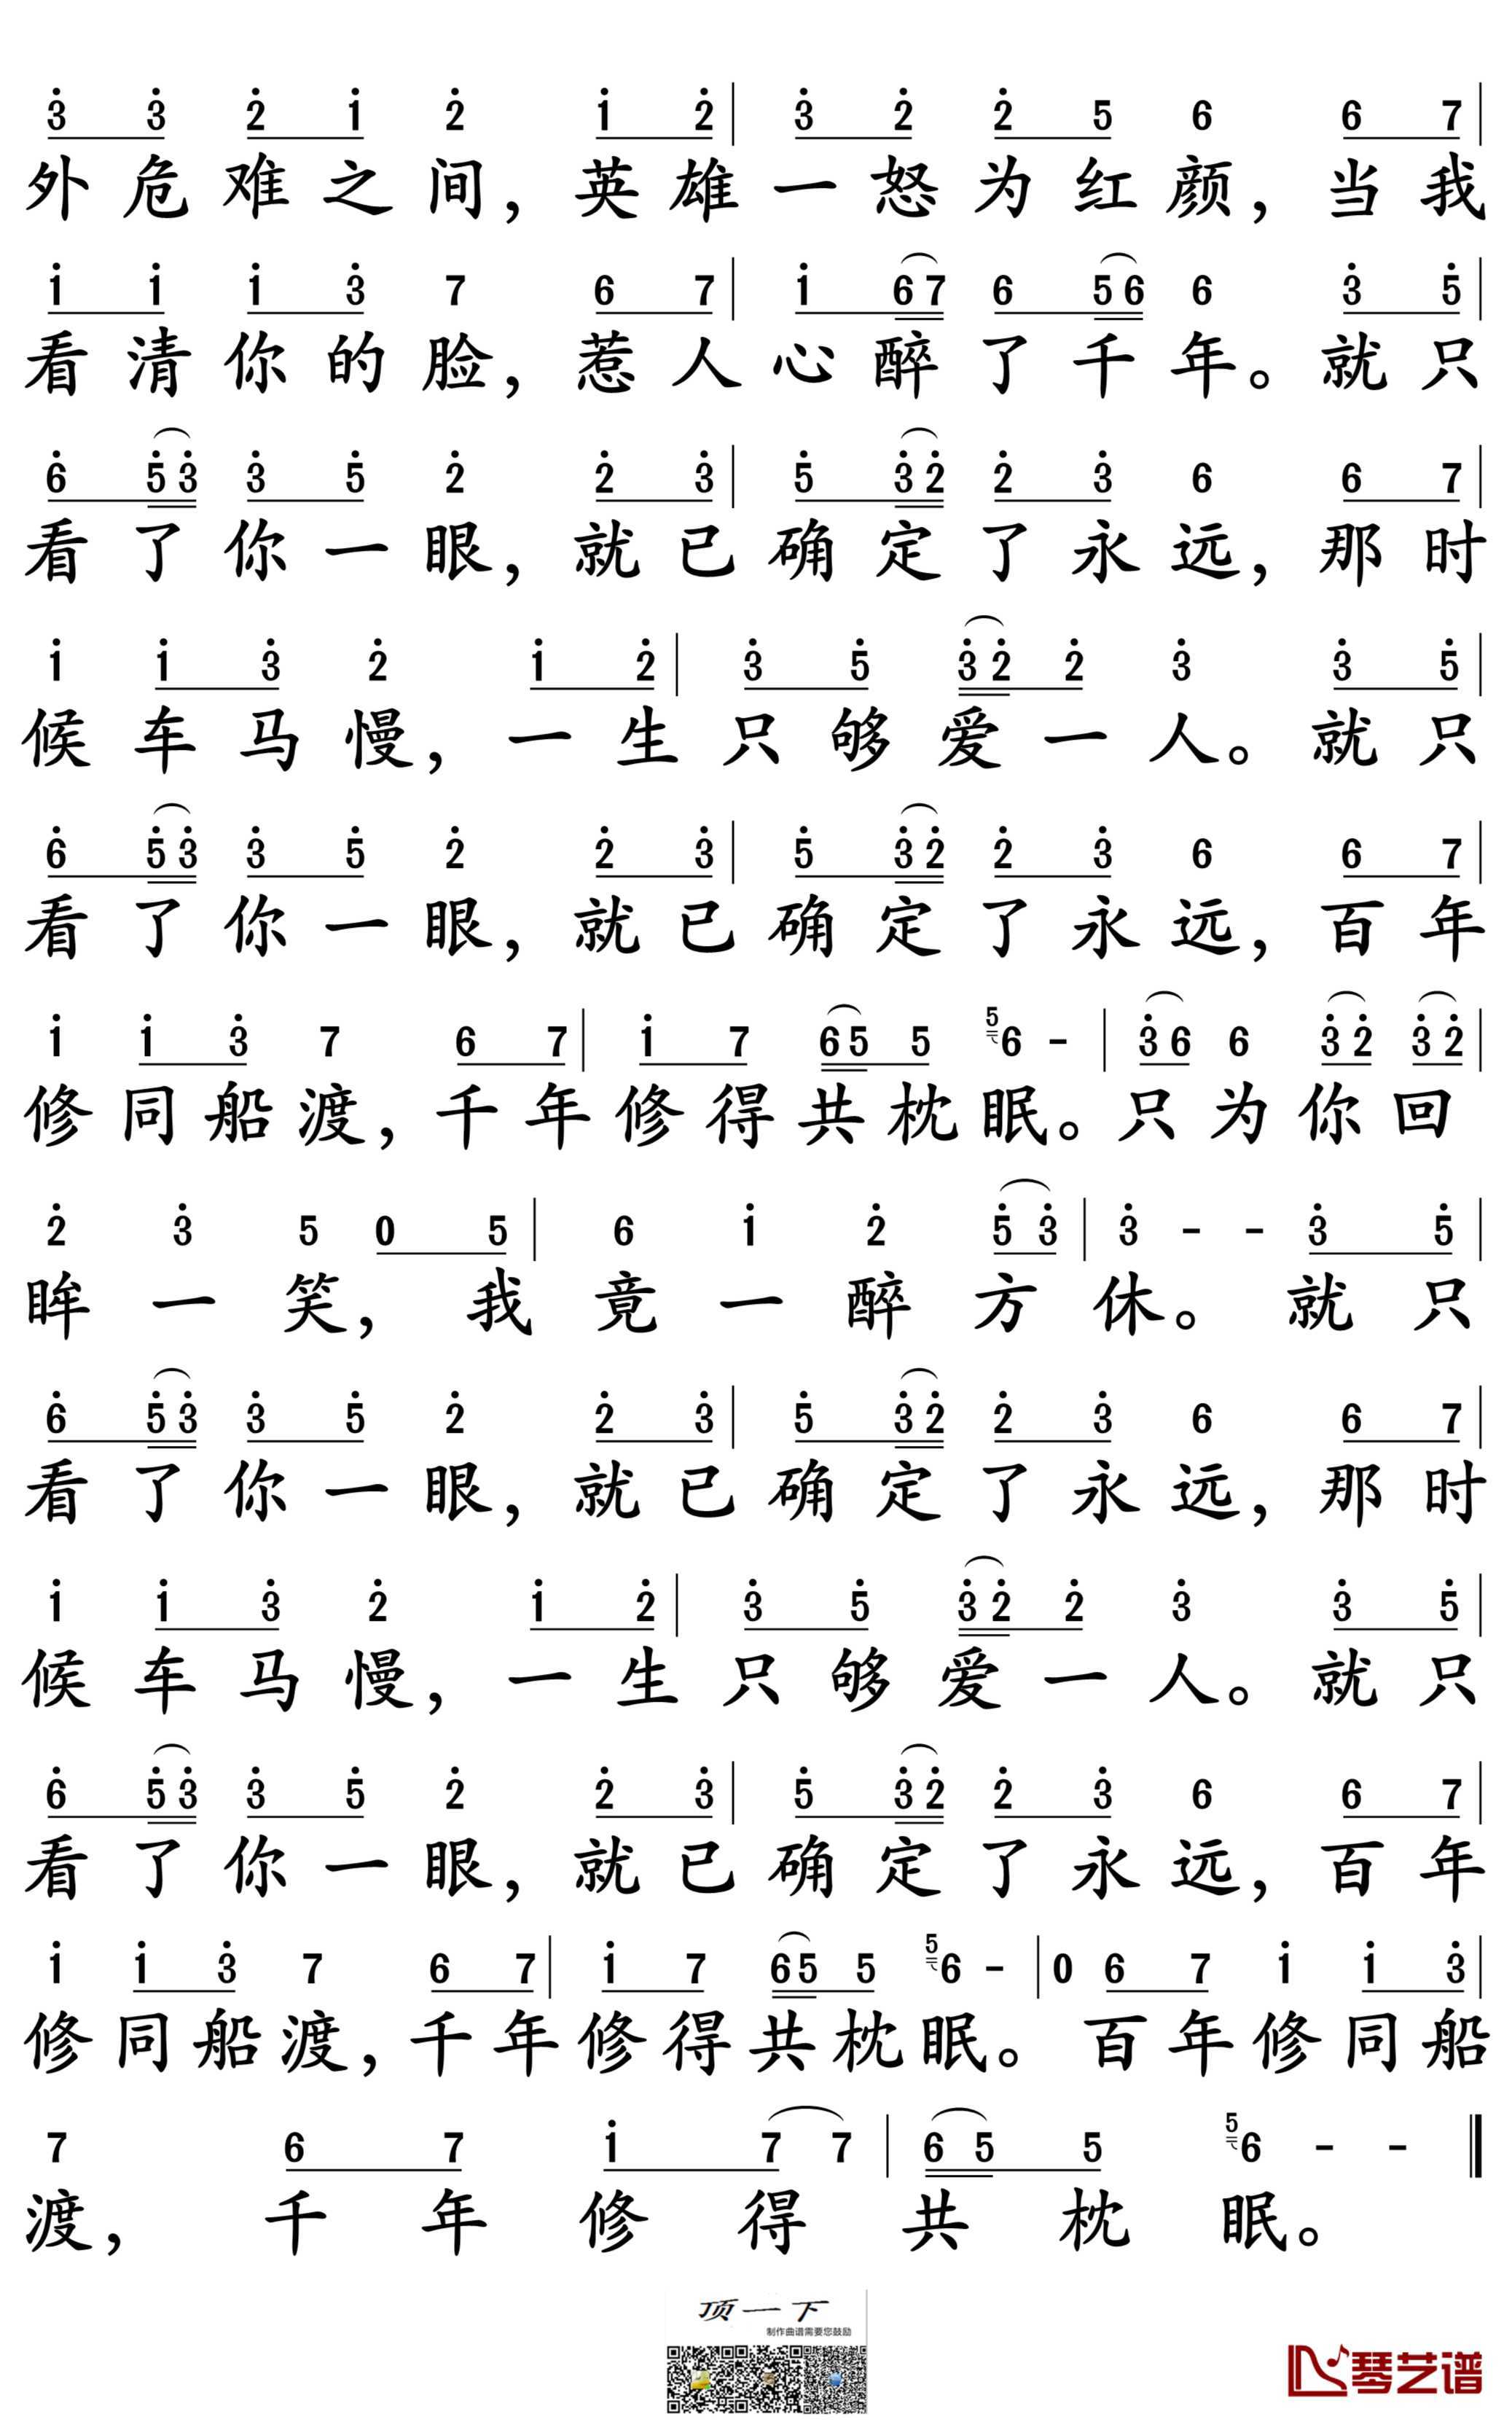 3̇ 3̇ 2̇ 1̇ 2̇ 1̇ 2̇ | 3̇ 2̇ 2̇ 5 6 6 7 |
外危难之间，英雄一怒为红颜，当我
1̇ 1̇ 1̇ 3̇ 7 6 7 | 1̇ 6 7 6 5 6 6 3̇ 5̇ |
看清你的脸，惹人心醉了千年。就只
6̇ 5̇ 3̇ 3̇ 5̇ 2̇ 2̇ 3̇ | 5̇ 3̇ 2̇ 2̇ 3̇ 6 6 7 |
看了你一眼，就已确定了永远，那时
1̇ 1̇ 3̇ 2̇ 1̇ 2̇ | 3̇ 5̇ 3̇ 2̇ 2̇ 3̇ 3̇ 5̇ |
候车马慢，一生只够爱一人。就只
6̇ 5̇ 3̇ 3̇ 5̇ 2̇ 2̇ 3̇ | 5̇ 3̇ 2̇ 2̇ 3̇ 6 6 7 |
看了你一眼，就已确定了永远，百年
1̇ 1̇ 3̇ 7 6 7 | 1̇ 7 6 5 5 5 6 - | 3̇ 6 6 3̇ 2̇ 3̇ 2̇ |
修同船渡，千年修得共枕眠。只为你回
2̇ 3̇ 5 0 5 | 6 1̇ 2̇ 5̇ 3̇ | 3̇ - - 3̇ 5̇ |
眸一笑，我竟一醉方休。就只
6̇ 5̇ 3̇ 3̇ 5̇ 2̇ 2̇ 3̇ | 5̇ 3̇ 2̇ 2̇ 3̇ 6 6 7 |
看了你一眼，就已确定了永远，那时
1̇ 1̇ 3̇ 2̇ 1̇ 2̇ | 3̇ 5̇ 3̇ 2̇ 2̇ 3̇ 3̇ 5̇ |
候车马慢，一生只够爱一人。就只
6̇ 5̇ 3̇ 3̇ 5̇ 2̇ 2̇ 3̇ | 5̇ 3̇ 2̇ 2̇ 3̇ 6 6 7 |
看了你一眼，就已确定了永远，百年
1̇ 1̇ 3̇ 7 6 7 | 1̇ 7 6 5 5 5 6 - | 0 6 7 1̇ 1̇ 3̇ |
修同船渡，千年修得共枕眠。百年修同船
7 6 7 1̇ 7 7 | 6 5 5 5 6 - - ‖
渡，千年修得共枕眠。
顶一下
制作曲谱需要您鼓励
琴艺谱